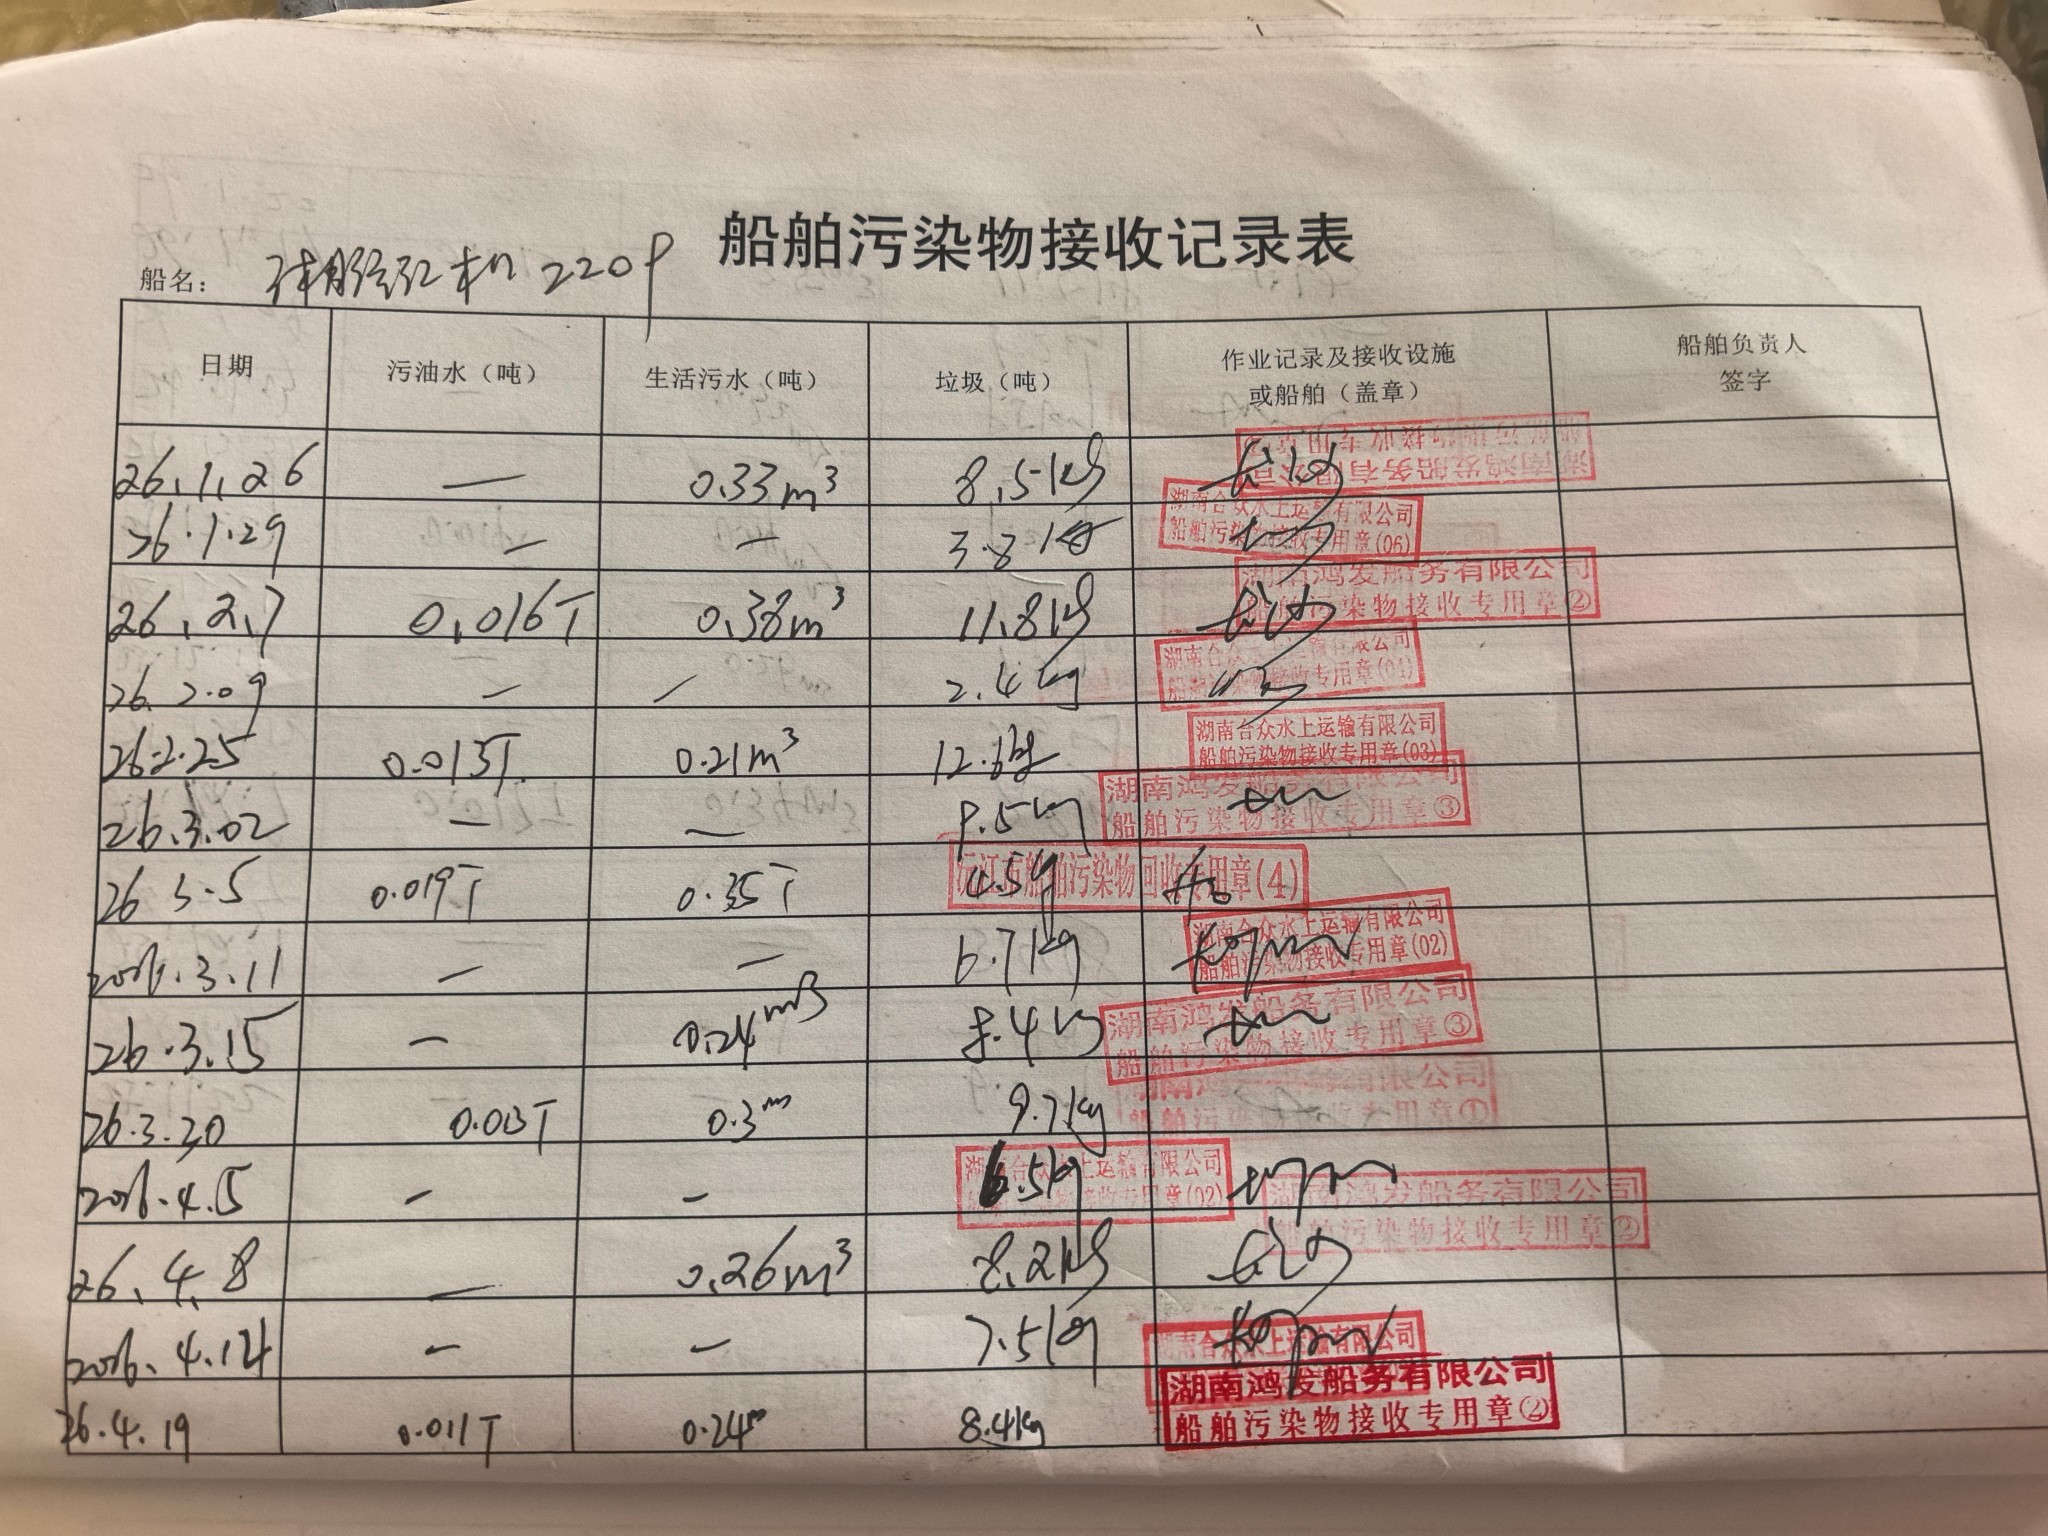 船舶污染物接收记录表
船名： 机 2209
日期 污油水（吨） 生活污水（吨） 垃圾（吨） 作业记录及接收设施或船舶（盖章） 船舶负责人签字
26.1.26 — 0.33m³ 8.5kg 长沙 湖南鸿发船务有限公司 船舶污染物接收专用章
26.1.29 — — 3.8kg 湖南合众水上运输有限公司 船舶污染物接收专用章(06)
26.2.7 0.016T 0.38m³ 11.8kg 长沙 湖南鸿发船务有限公司 船舶污染物接收专用章②
26.2.09 — — 2.4kg 湖南合众水上运输有限公司 船舶污染物接收专用章(04)
26.2.25 0.013T 0.21m³ 12.6kg 湖南合众水上运输有限公司 船舶污染物接收专用章(03)
26.3.02 — — 9.5kg 湖南鸿发船务有限公司 船舶污染物接收专用章③
26 3.5 0.019T 0.35T 4.5kg 沅江市船舶污染物回收专用章(4)
2026.3.11 — — 6.7kg 湖南合众水上运输有限公司 船舶污染物接收专用章(02)
26.3.15 — 0.24m³ 8.4kg 湖南鸿发船务有限公司 船舶污染物接收专用章③
26.3.20 0.013T 0.3m 9.7kg 湖南鸿发船务有限公司 船舶污染物接收专用章①
2026.4.5 — — 6.5kg 湖南合众水上运输有限公司 船舶污染物接收专用章(02)
26.4.8 — 0.26m³ 8.2kg 长沙 湖南鸿发船务有限公司 船舶污染物接收专用章②
2026.4.14 — — 7.5kg 湖南合众水上运输有限公司
26.4.19 0.011T 0.24m 8.4kg 湖南鸿发船务有限公司 船舶污染物接收专用章②